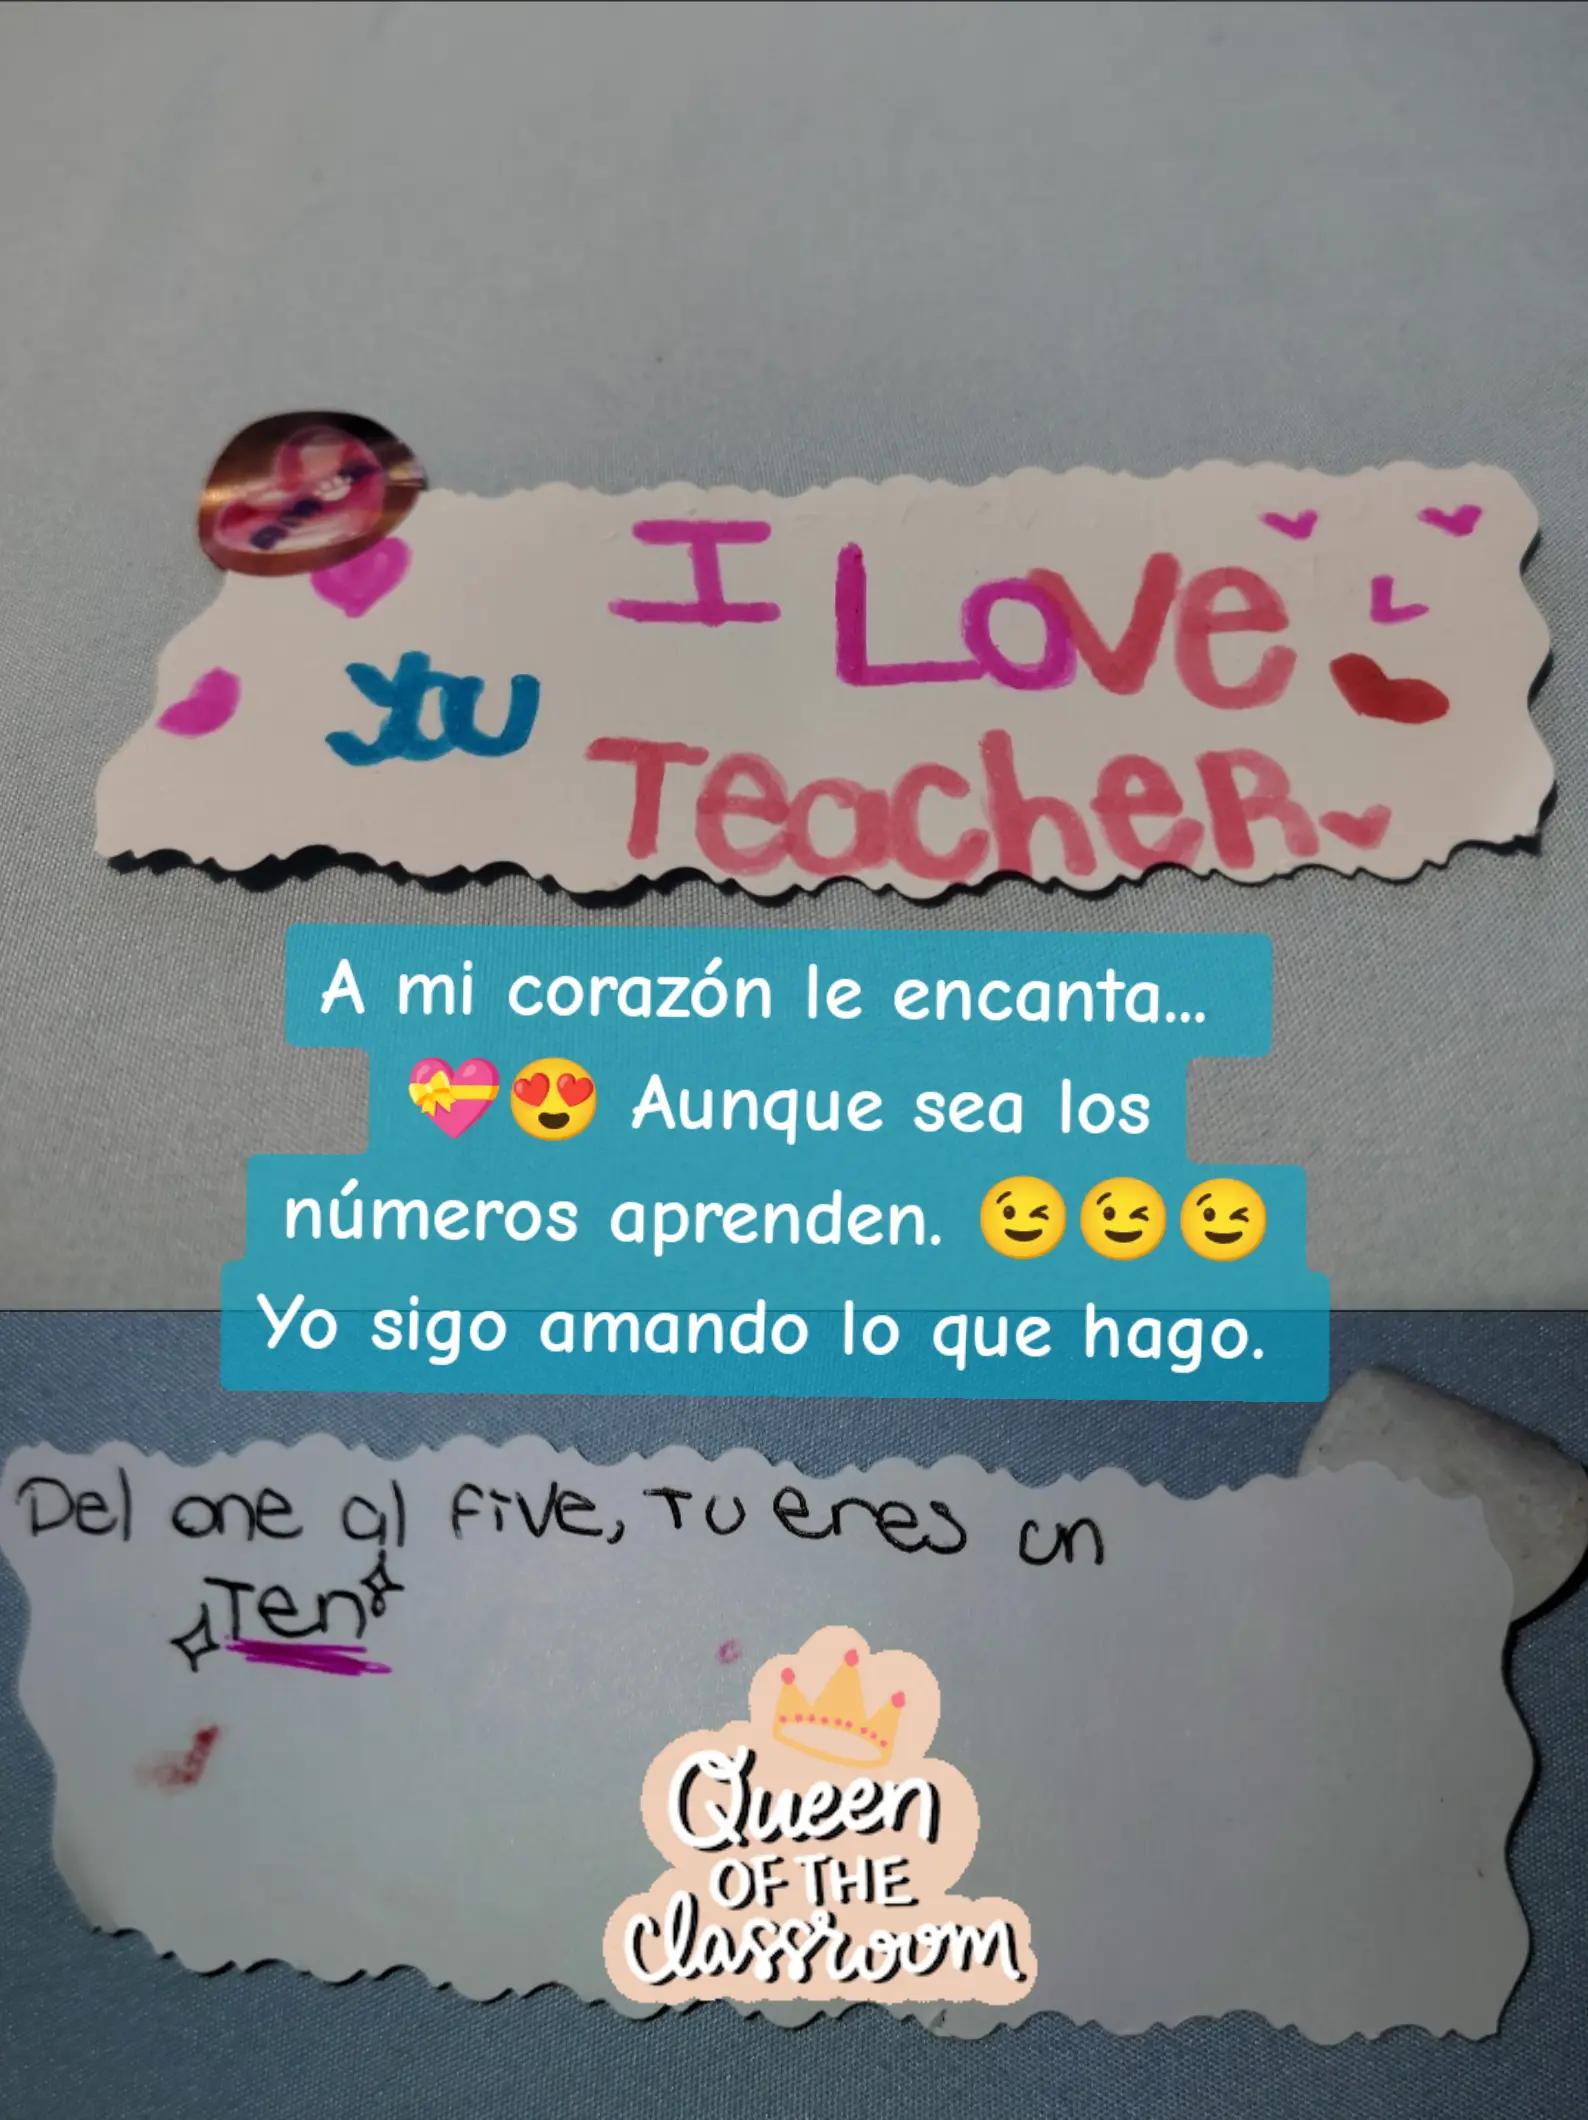 I Love
You
Teacher
A mi corazón le encanta...
💝😍 Aunque sea los
números aprenden. 😉😉😉
Yo sigo amando lo que hago.
Del one al five, Tu eres un
Ten
Queen
OF THE
Classroom